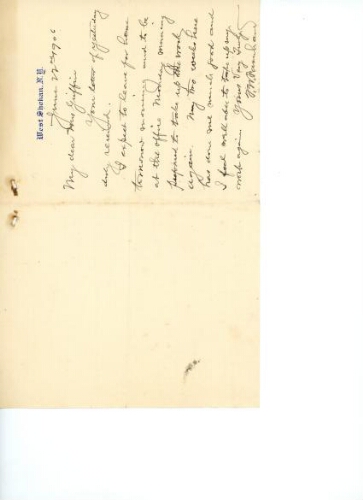 West Shokan, N.Y.
June 22nd 1906
My dear Mrs Griffin
Your letter of yesterday
duly received.
I expect to leave for home
tomorrow morning and to be
at the office Monday morning
prepared to take up the work
again. My two weeks here
has done me much good and
I feel well able to take up my
work again.
Yours Very Truly